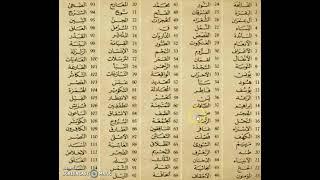 1 الفاتحة 24 النور 47 محمد 70 المعارج 93 الضحى
2 البقرة 25 الفرقان 48 الفتح 71 نوح 94 الشرح
3 آل عمران 26 الشعراء 49 الحجرات 72 الجن 95 التين
4 النساء 27 النمل 50 ق 73 المزمل 96 العلق
5 المائدة 28 القصص 51 الذاريات 74 المدثر 97 القدر
6 الأنعام 29 العنكبوت 52 الطور 75 القيامة 98 البينة
7 الأعراف 30 الروم 53 النجم 76 الإنسان 99 الزلزلة
8 الأنفال 31 لقمان 54 القمر 77 المرسلات 100 العاديات
9 التوبة 32 السجدة 55 الرحمن 78 النبأ 101 القارعة
10 يونس 33 الأحزاب 56 الواقعة 79 النازعات 102 التكاثر
11 هود 34 سبأ 57 الحديد 80 عبس 103 العصر
12 يوسف 35 فاطر 58 المجادلة 81 التكوير 104 الهمزة
13 الرعد 36 يس 59 الحشر 82 الانفطار 105 الفيل
14 إبراهيم 37 الصافات 60 الممتحنة 83 المطففين 106 قريش
15 الحجر 38 ص 61 الصف 84 الانشقاق 107 الماعون
16 النحل 39 الزمر 62 الجمعة 85 البروج 108 الكوثر
17 الإسراء 40 غافر 63 المنافقون 86 الطارق 109 الكافرون
18 الكهف 41 فصلت 64 التغابن 87 الأعلى 110 النصر
19 مريم 42 الشورى 65 الطلاق 88 الغاشية 111 المسد
20 طه 43 الزخرف 66 التحريم 89 الفجر 112 الإخلاص
21 الأنبياء 44 الدخان 67 الملك 90 البلد 113 الفلق
22 الحج 45 الجاثية 68 القلم 91 الشمس 114 الناس
23 المؤمنون 46 الأحقاف 69 الحاقة 92 الليل